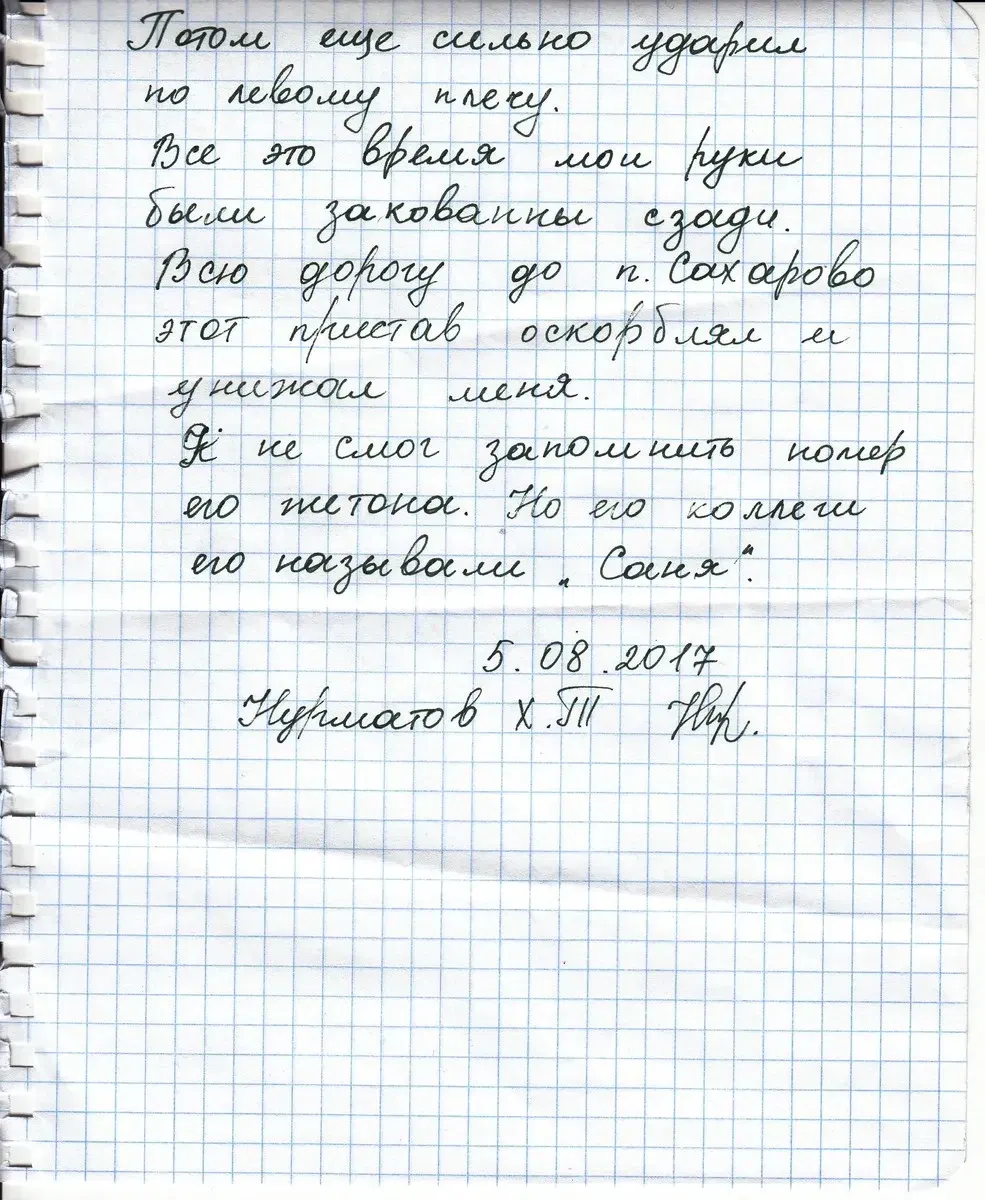 Потом еще сильно ударил
по левому плечу.
Все это время мои руки
были закованны сзади.
Всю дорогу до п. Сахарово
этот пристав оскорблял и
унижал меня.
Я не смог запомнить номер
его жетона. Но его коллеги
его называли „Саня".
5.08.2017
Нурматов Х.Ш